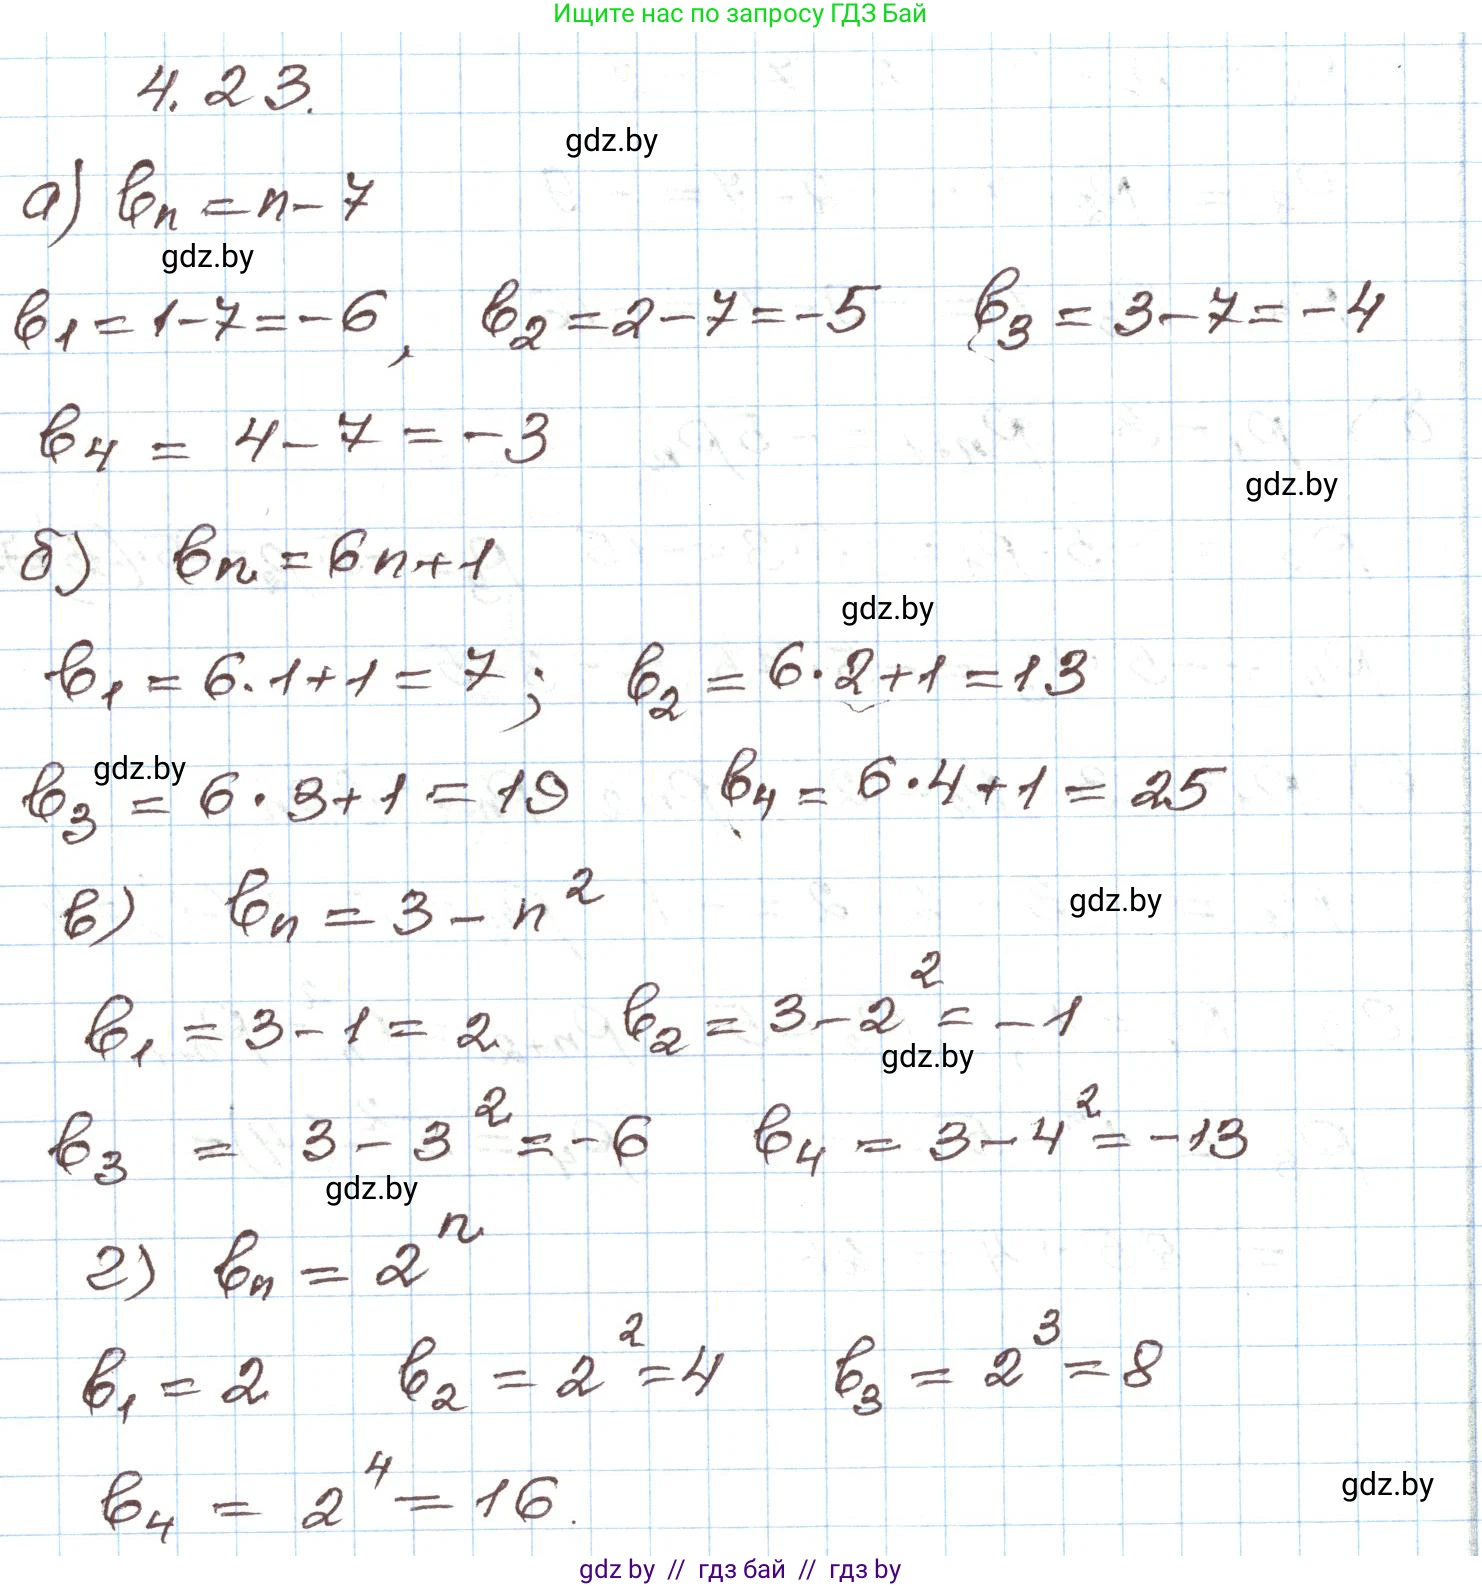 Ищите нас по запросу ГДЗ Бай
4.23.
gdz.by
а) bₙ = n - 7
gdz.by
b₁ = 1 - 7 = -6, b₂ = 2 - 7 = -5 b₃ = 3 - 7 = -4
b₄ = 4 - 7 = -3
gdz.by
б) bₙ = 6n + 1
gdz.by
b₁ = 6·1 + 1 = 7; b₂ = 6·2 + 1 = 13
gdz.by
b₃ = 6·3 + 1 = 19 b₄ = 6·4 + 1 = 25
в) bₙ = 3 - n²
gdz.by
b₁ = 3 - 1 = 2 b₂ = 3 - 2² = -1
gdz.by
b₃ = 3 - 3² = -6 b₄ = 3 - 4² = -13
gdz.by
г) bₙ = 2ⁿ
b₁ = 2 b₂ = 2² = 4 b₃ = 2³ = 8
b₄ = 2⁴ = 16.
gdz.by
gdz by // гдз бай // гдз by